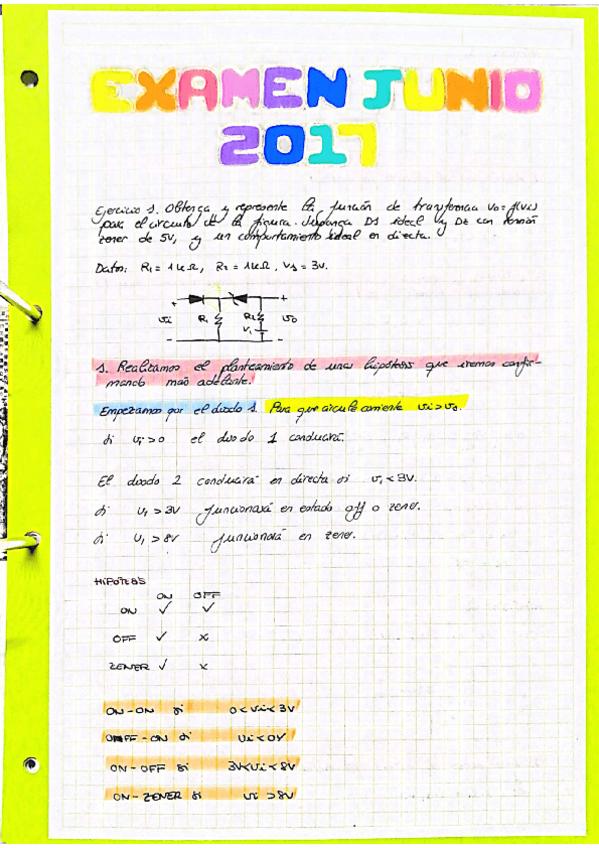 EXAMEN JUNIO
2017
Ejercicio 1. Obtenga y represente la función de transferencia Vo = f(vi)
para el circuito de la figura. Suponga D1 ideal y Dz con tensión
zener de 5V, y un comportamiento ideal en directa.
Datos: R1 = 1kΩ, R2 = 1kΩ, V1 = 3v.
+ +
Vi R1 R2 Vo
V1
- -
1. Realizamos el planteamiento de unas hipótesis que iremos confir-
mando más adelante.
Empezamos por el diodo 1. Para que circule corriente Vi > Vo.
Si Vi > 0 el diodo 1 conducirá.
El diodo 2 conducirá en directa si V1 < 3V.
Si V1 > 3V funcionará en estado off o zener.
Si V1 > 8V funcionará en zener.
HIPÓTESIS
ON OFF
ON ✓ ✓
OFF ✓ x
ZENER ✓ x
ON-ON si 0 < Vi < 3V
OFF-ON si Vi < 0V
ON-OFF si 3V < Vi < 8V
ON-ZENER si Vi > 8V